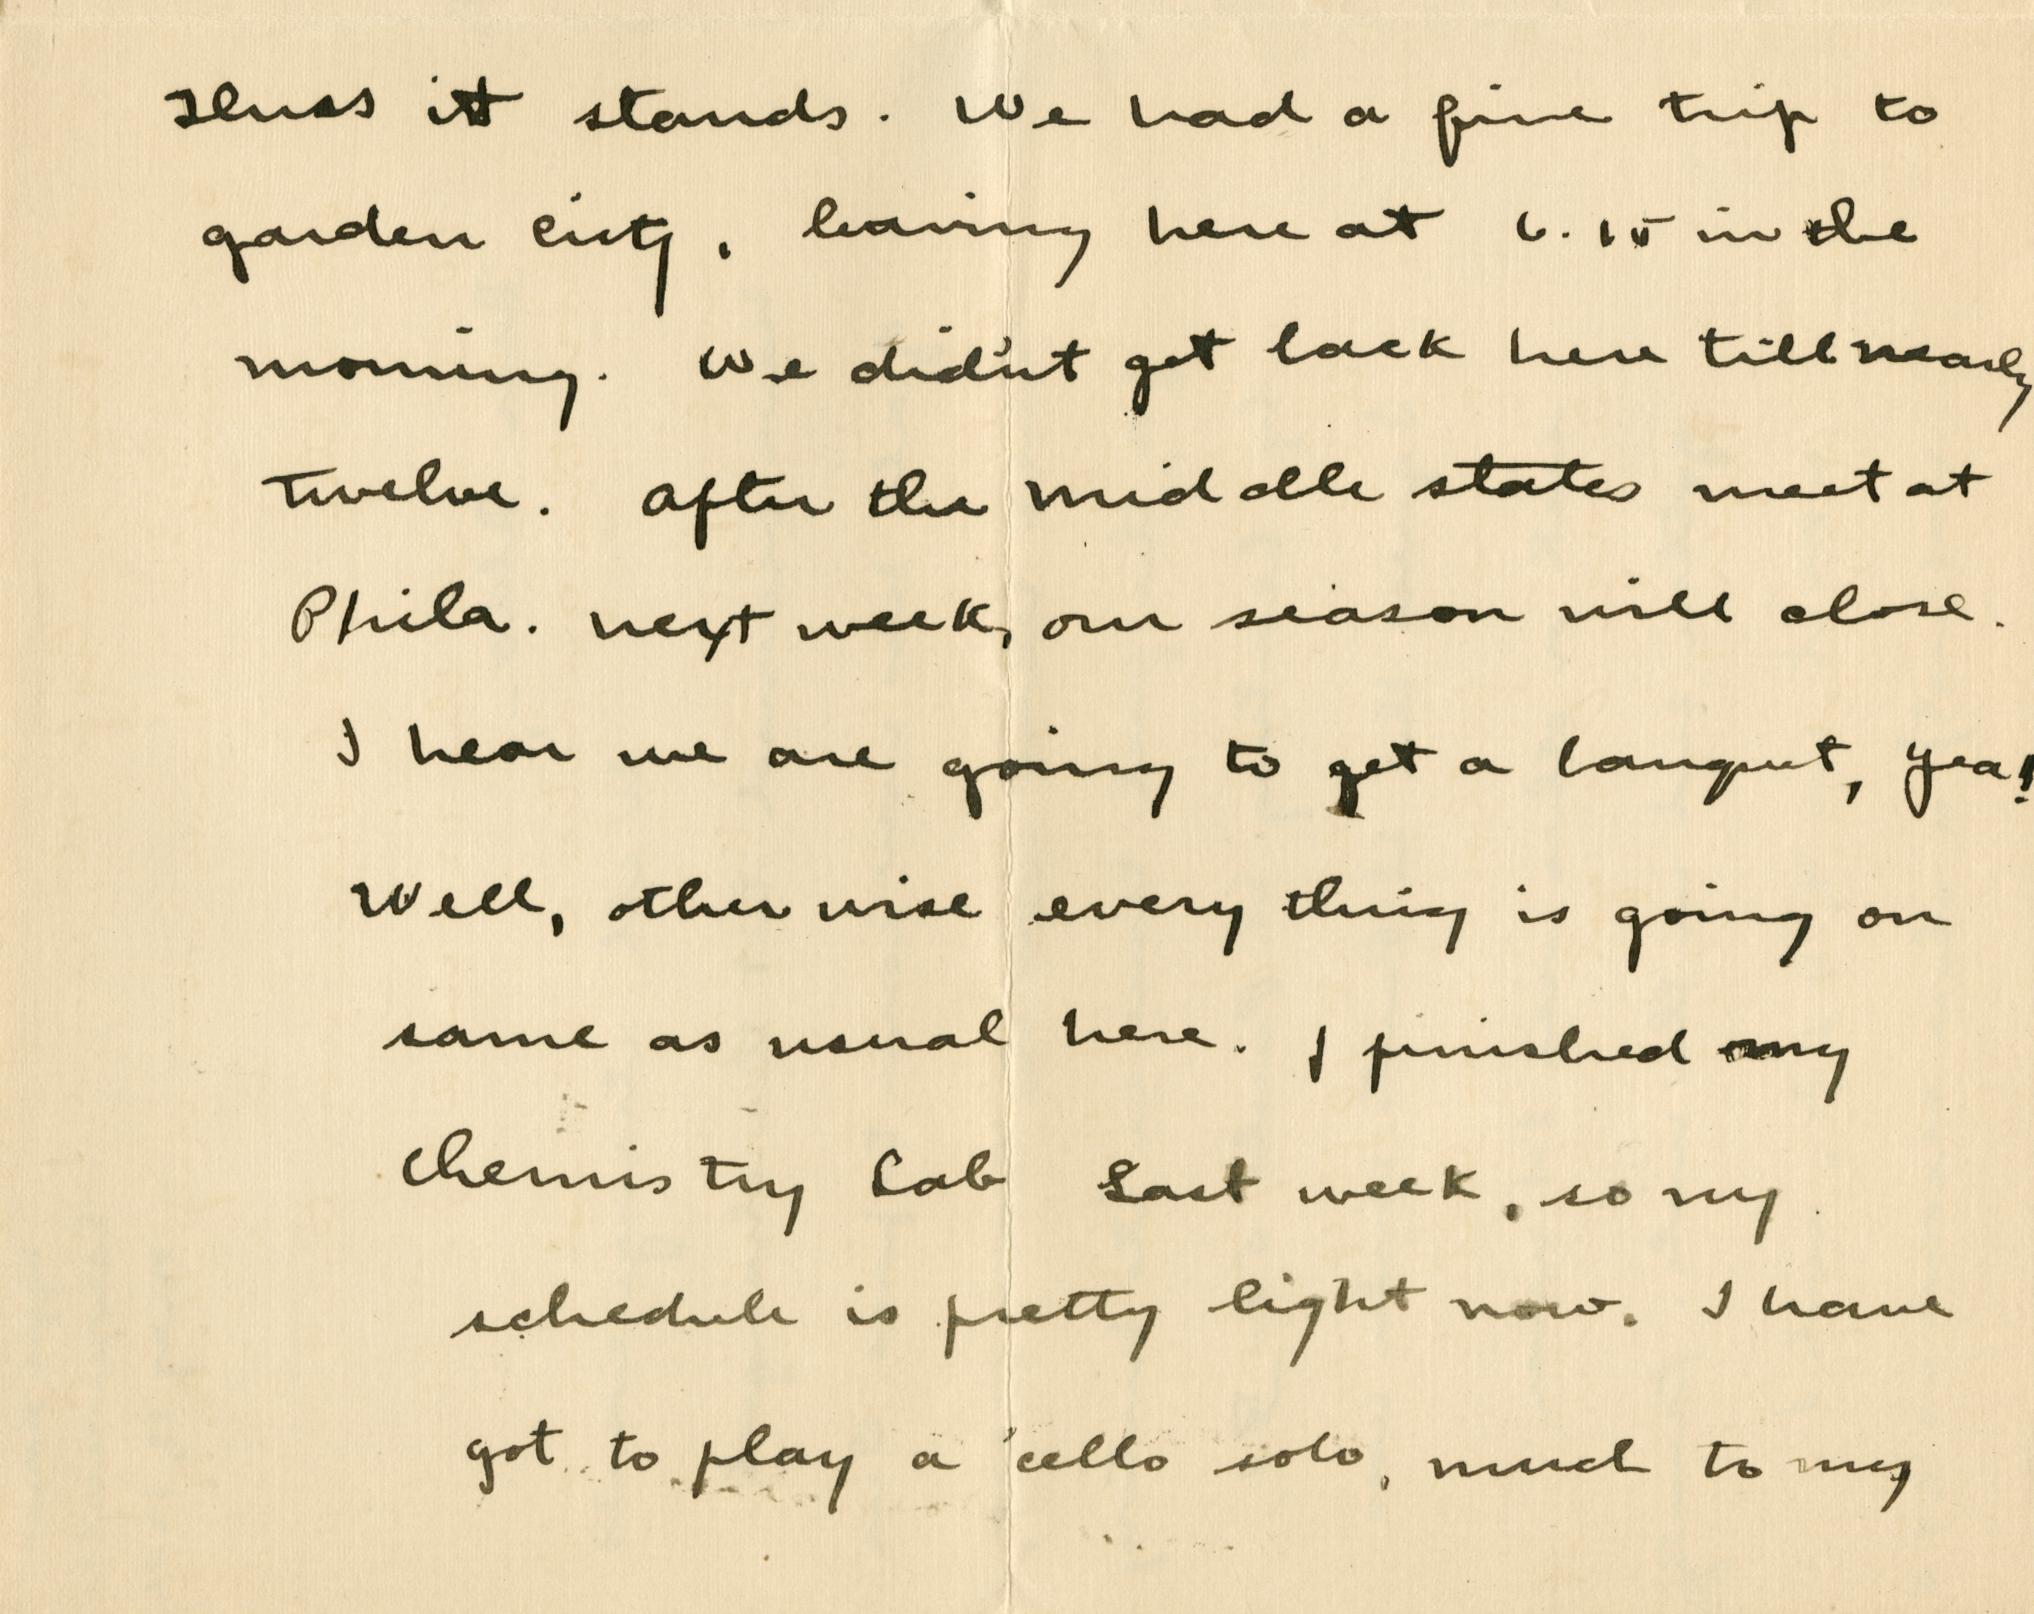 thus it stands. We had a fine trip to
garden city, leaving here at 6.15 in the
morning. We didn't get back here till nearly
twelve. After the middle states meet at
Phila. next week, our season will close.
I hear we are going to get a banquet, yea!
Well, other wise every thing is going on
same as usual here. I finished my
chemistry Lab last week, so my
schedule is pretty light now. I have
got to play a 'cello solo, much to my